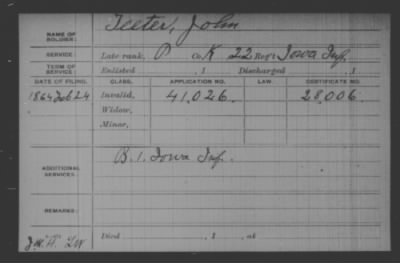 NAME OF SOLDIER: Teeter, John
SERVICE: Late rank, P Co. K 22 Reg't Iowa Inf.
TERM OF SERVICE: Enlisted , 1 Discharged , 1
DATE OF FILING. CLASS. APPLICATION NO. LAW. CERTIFICATE NO.
1864 Feb 24 Invalid, 41,026. 28,006.
Widow,
Minor,
ADDITIONAL SERVICES: B. 1. Iowa Inf.
REMARKS:
Died , 1 , at